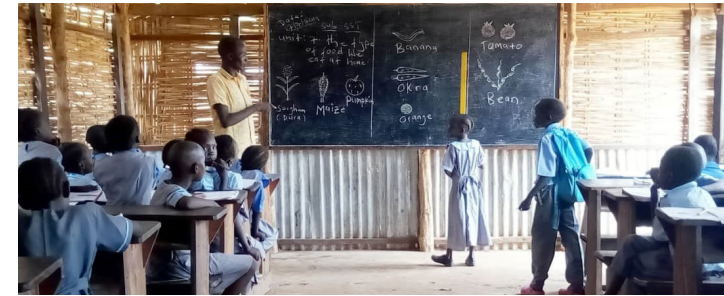 Date:
Sub: SST
Unit: 7 the type
of food we
eat at home
Sorghum
(Dura)
Maize
Pumpkin
Banana
Okra
Orange
Tomato
Bean